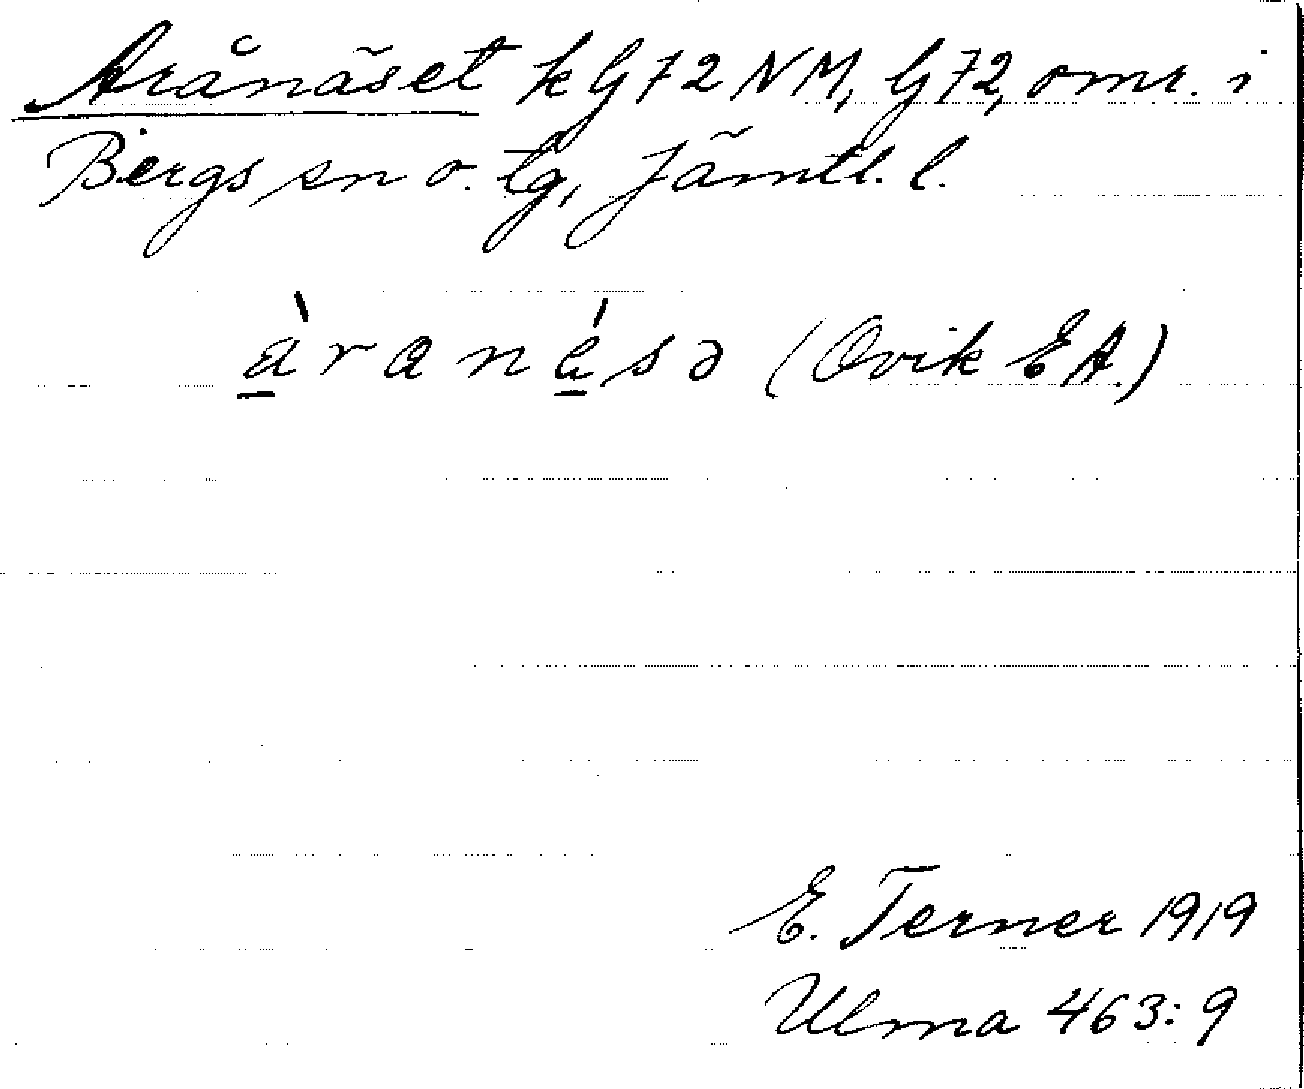 Arånäset k G72 NM, G72, omr. i
Bergs sn o. tg, Jämtl. l.
àranä́sə (Ovik E A.)
E. Terner 1919
Ulma 463:9